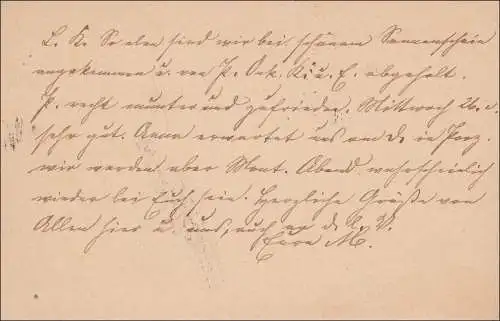 L. K. So eben sind wir bei schönem Sonnenschein
angekommen u. von P. Onk. K. u. E. abgeholt.
P. recht munter und zufrieden. Mittwoch
sehr gut. Anna erwartet uns an d. in
wir werden aber Mont. Abend wahrscheinlich
wieder bei Euch sein. Herzliche Grüße von
Allen hier u. uns, auch an d. l. V.
Eure M.